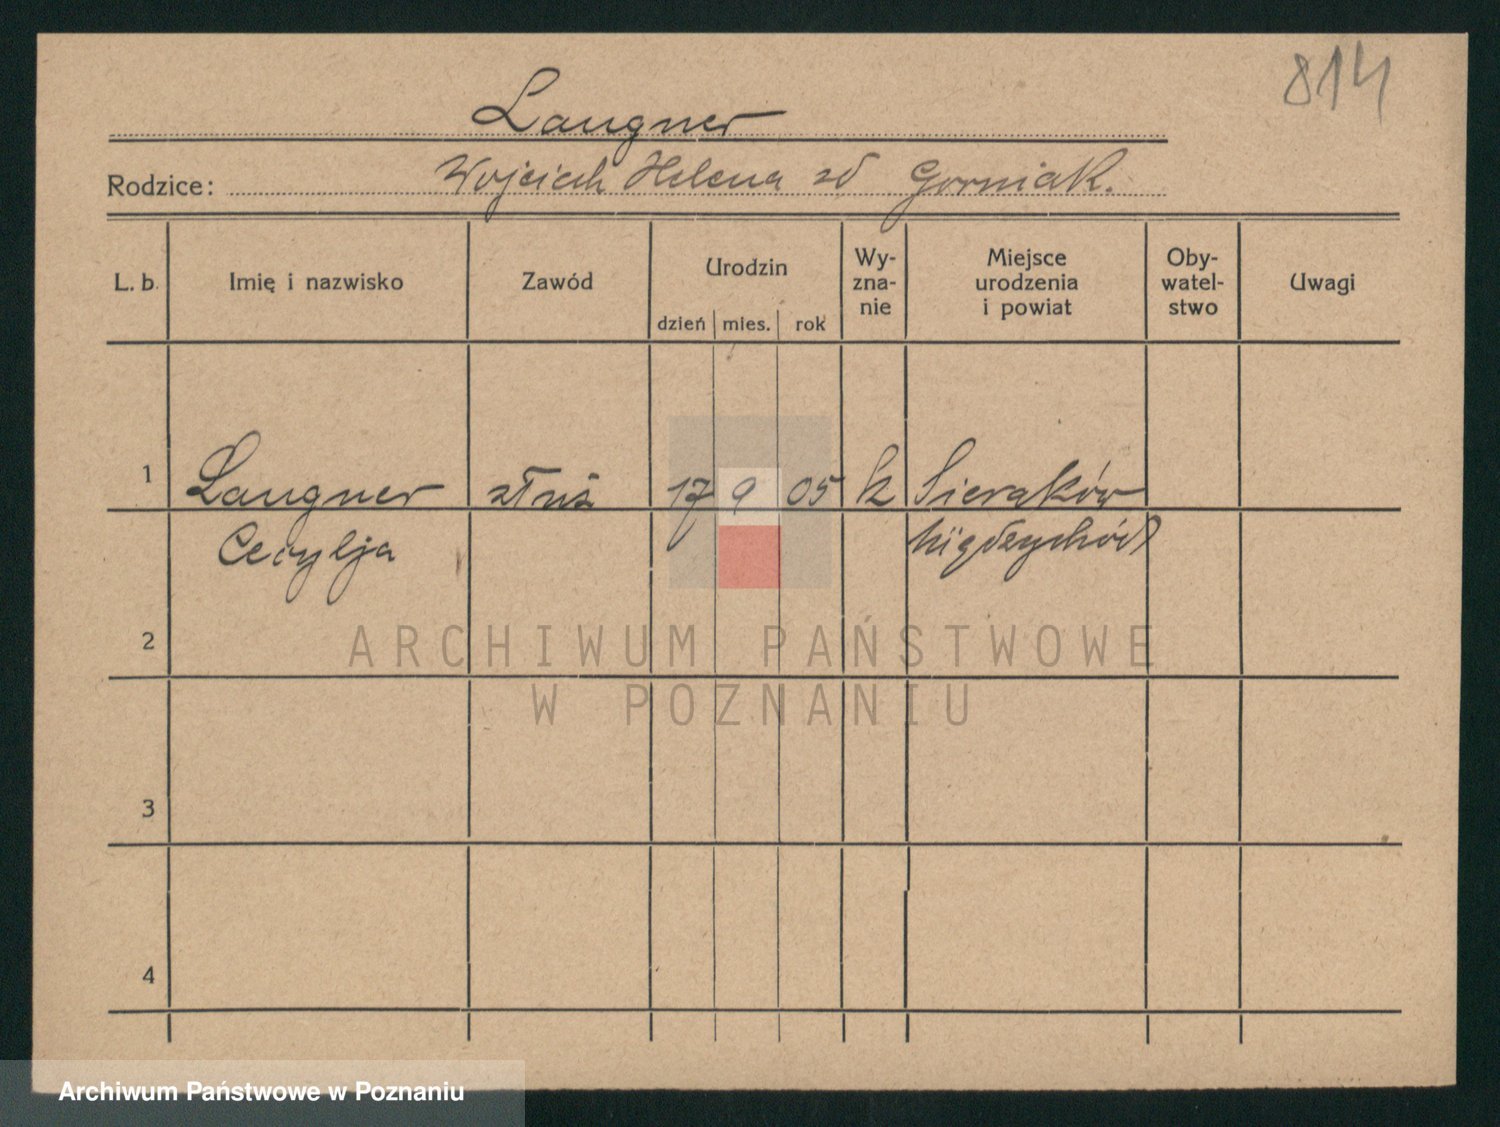 814
Langner
Rodzice: Wojciech Helena zd Gorniak.
L. b. Imię i nazwisko Zawód Urodzin dzień mies. rok Wy-zna-nie Miejsce urodzenia i powiat Oby-watel-stwo Uwagi
1 Langner 17 9 05 k Sieraków
Cecylja Międzychód
2
ARCHIWUM PAŃSTWOWE
W POZNANIU
3
4
Archiwum Państwowe w Poznaniu